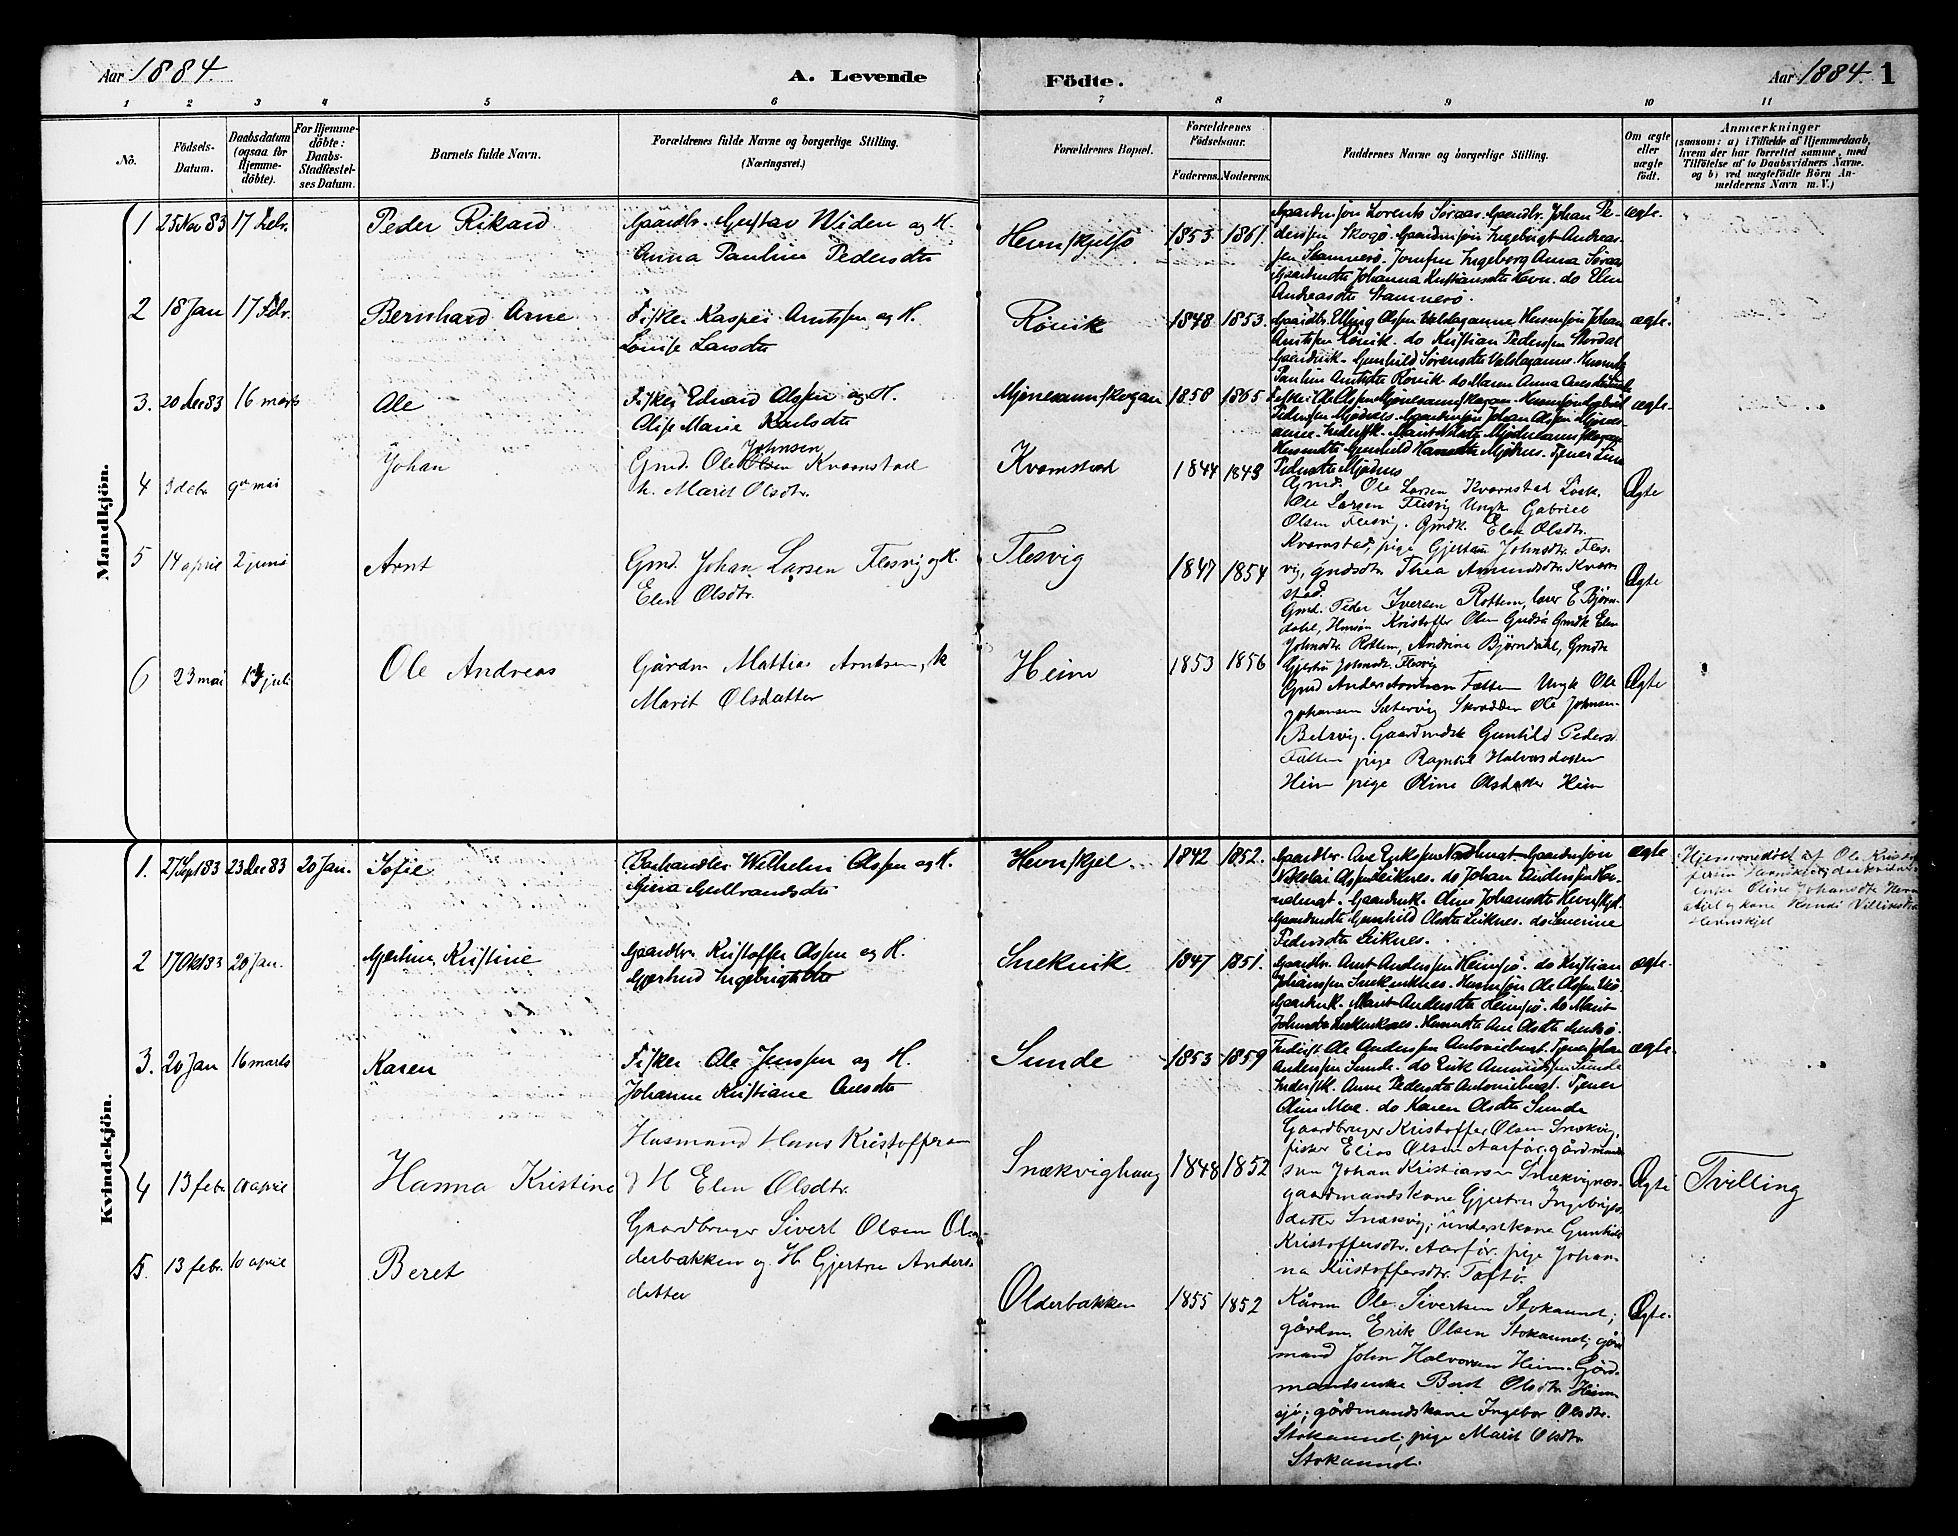 Aar 1884.
A. Levende
Födte.
Aar 1884. 1
1 2 3 4 5 6 7 8 9 10 11
No.
Födsels-
Datum.
Daabsdatum
(ogsaa for
Hjemme-
döbte).
For Hjemme-
döbte:
Daabs-
Stadfæstel-
ses Datum.
Barnets fulde Navn.
Forældrenes fulde Navne og borgerlige Stilling.
(Næringsvei.)
Forældrenes Bopæl.
Forældrenes
Födselsaar.
Faderens. Moderens.
Faddernes Navne og borgerlige Stilling.
Om ægte
eller
uægte
födt.
Anmærkninger
(saasom: a) i Tilfælde af Hjemmedaab,
hvem der har forrettet samme, med
Tilföielse af to Daabsvidners Navne.
og b) ved uægtefödte Börn An-
melderens Navn m. V.)
Mandkjön.
1 25 Nov 83 17 Febr. Peder Rikard
Gaardbr. Gustav Widen og H.
Anna Pauline Pedersdtr
Hevnskjelsø 1853 1861.
Gaardmsøn Lorents Søraas. Gaardbr. Johan Pe-
derssen Skogø. Gaardmsøn Ingebrigt Andreas-
sen Stamnesø. Jomfru Ingeborg Anna Søraas
Gaardmdtr Johanna Kristiansdtr Havn. do Elen
Andreasdtr Stamnesø.
ægte.
2 18 Jan 17 Febr. Bernhard Arne
Fisker Kasper Arntssen og H.
Lovise Larsdtr
Rövik 1848 1853.
Gaardbr. Elling Olssen Valslaganne. Husmsøn Johan
Arntssen Rövik. do Kristian Pederssen Stordal
Gaardmk. Gunhild Sørensdtr Valslaganne. Husmdtr
Pauline Arntsdtr Rövik. do Maren Anna
ægte.
3. 20 Dec 83 16 marts Ole
Fisker Edvard Olssen og H.
Olise Marie Karlsdtr
Mjønesaunskogan 1858 1865
ægte.
4 3 debr 9de mai Johan
Johnsen
Gmd. Ole Olsen Kvamstad
h. Marit Olsdtr.
Kvamstad 1844 1843
Pedersdtr Mjødnes
Gmd. Ole Larsen Kvamstad
Ole Larsen Flesvig Ungk Gabriel
Olsen Flesvig. Gmdk. Elen Olsdtr.
Kvamstad, pige Gjertru Johnsdtr. Fles-
vig, gmdsdtr. Thea Amundsdtr. Kvam
stad.
Ægte
5 14 april 2 juni Arnt
Gmd. Johan Larsen Flesvig og H.
Elen Olsdtr.
Flesvig 1847 1854
Gmd. Peder Iversen Rottem, lærer E. Bjørn-
dahl, Kristoffer Olsen Gmdk Elen
Johnsdtr Rottem, Andrine Bjørndahl, Gmdtr
Gjertru Johnsdtr. Flesvig
Ægte
6 23 mai juli Ole Andreas
Gårdm Mattias Arntsen, h
Marit Olsdatter
Heim 1853 1856
Gmd Anders Arntsen Fætten Ungk Ole
Johansen Sætervig Skrædder Ole Johnsen
Belsvig. Gaardmdsk Gunhild Pedersd
Fætten pige Ragnhil Halvorsdatter
Heim pige Oline Olsdatter Heim
Ægte
Kvindekjön.
1. 27 Sept 83 23 Dec 83 20 Jan. Sofie
Wilhelm Olssen og H.
Gina Gulbrandsdtr
Hevnskjel 1842 1852.
Gaardbr. Ane Gaardmsøn
Nikolai Olssen Leiknes. do Johan Anderssen
Gaardmk. Oline Johansdtr Hevnskjel
Gaardmdtr Gunhild Olsdtr Leiknes. do Severine
Pedersdtr Leiknes.
ægte
Hjemmedøbt af Ole Kristof
fersen Hevnskjel, daabsvidner
enke Oline Johansdtr Hevn
skjel og kone
Hevnskjel
2 17 Okt 83 20 Jan. Gjertine Kristine
Gaardbr. Kristoffer Olssen og H.
Gjertrud Ingebrigtsdtr
Snekvik 1847 1851.
Gaardbr. Arnt Anderssen Heimsjö. do Kristian
Johanssen Snekviknes. Husmsøn Ole Olssen
Gaardmk. Marit Andersdtr Heimsjö. do Marit
Johnsdtr Snekviknes. Husmdtr Ane Olsdtr
ægte.
3. 20 Jan 16 marts Karen
Fisker Ole Jenssen og H.
Johanne Kristiane Anesdtr
Sunde 1853 1859
Inderst Ole Anderssen Antonieburgt. Tjener Johan
Anderssen Sunde. do Erik Sunde
Inderstk. Anne Pedersdtr Antonieburgt. Tjener
Oline Moe. do Karen Olsdtr Sunde
ægte.
4 13 febr 10 april Hanna Kristine
Husmand Hans Kristoffersen
og H Elen Olsdtr.
Snækvighaug 1848 1852
Gaardbruger Kristoffer Olsen Snækvig,
fisker Elias Olsen Aarfør, gårdmands
søn Johan Kristiansen Snækvignæs.
gaardmandskone Gjertru Ingebrigts
datter Snækvig; inderstkone Gunhild
Kristoffersdtr. Aarfør. pige Johan-
na Kristoffersdtr. Taftø.
Ægte Tvilling
5. 13 febr. 10 april Beret
Gaardbruger Sivert Olsen Ol-
derbakken og H Gjertru Anders-
datter
Olderbakken 1855 1852
Kårm Ole Sivertsen Stokaunet;
gårdm. Erik Olsen Stokaunet; går
mand John Halvorsen Heim. Gård-
mandsenke Beret Olsdtr. Heim
sjø; gårdmandskone Ingebor Olsdtr.
Stokaunet; pige Marit Olsdtr
Stokaunet.
Ægte.